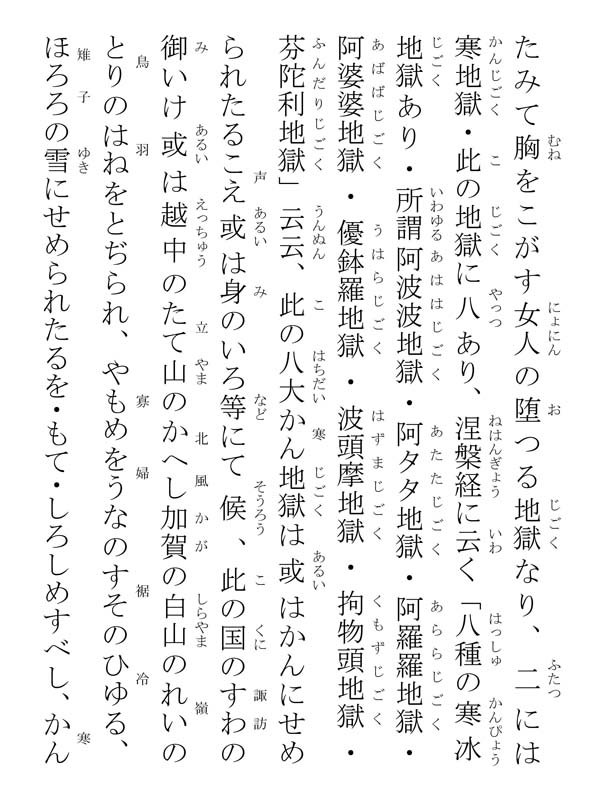 たみて胸をこがす女人の堕つる地獄なり、二には
寒地獄・此の地獄に八あり、涅槃経に云く「八種の寒冰
地獄あり・所謂阿波波地獄・阿タタ地獄・阿羅羅地獄・
阿婆婆地獄・優鉢羅地獄・波頭摩地獄・拘物頭地獄・
芬陀利地獄」云云、此の八大かん地獄は或はかんにせめ
られたるこえ或は身のいろ等にて候、此の国のすわの
御いけ或は越中のたて山のかへし加賀の白山のれいの
とりのはねをとぢられ、やもめをうなのすそのひゆる、
ほろろの雪にせめられたるを・もて・しろしめすべし、かん